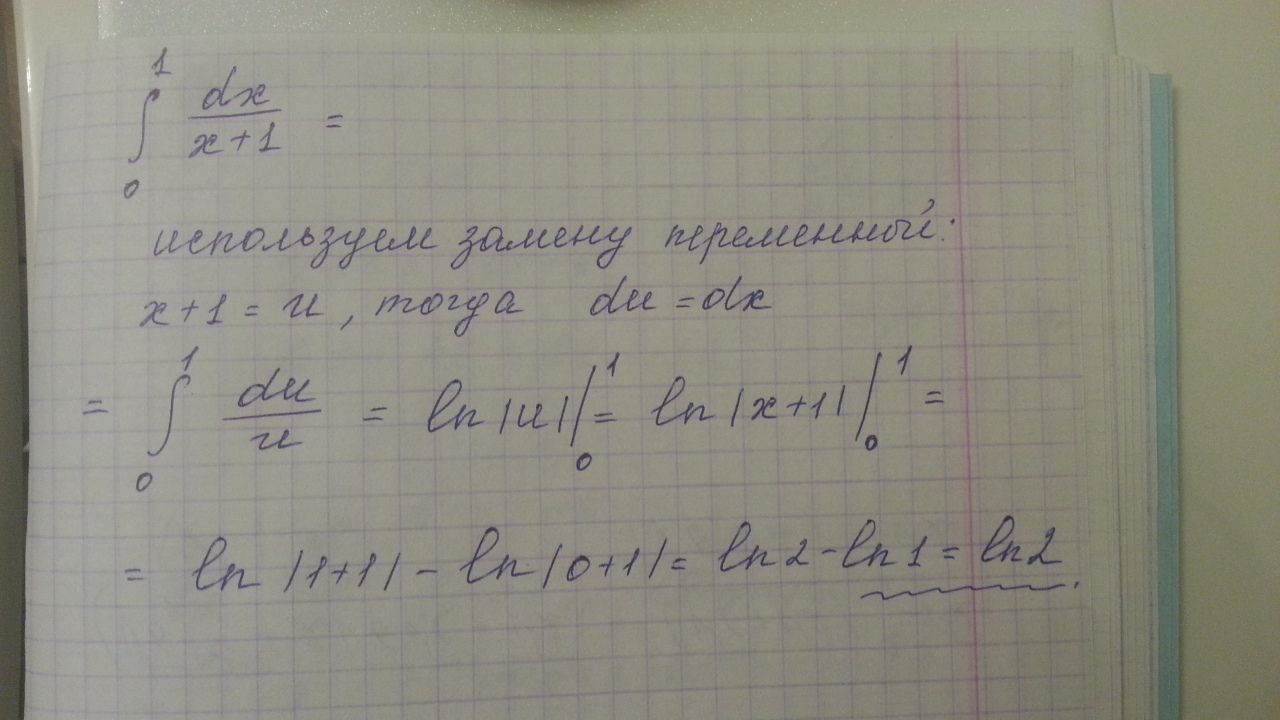 ∫₀¹ dx/(x+1) =
используем замену переменной:
x+1 = u, тогда du = dx
= ∫₀¹ du/u = ln|u||₀¹ = ln|x+1||₀¹ =
= ln|1+1| - ln|0+1| = ln2 - ln1 = ln2.